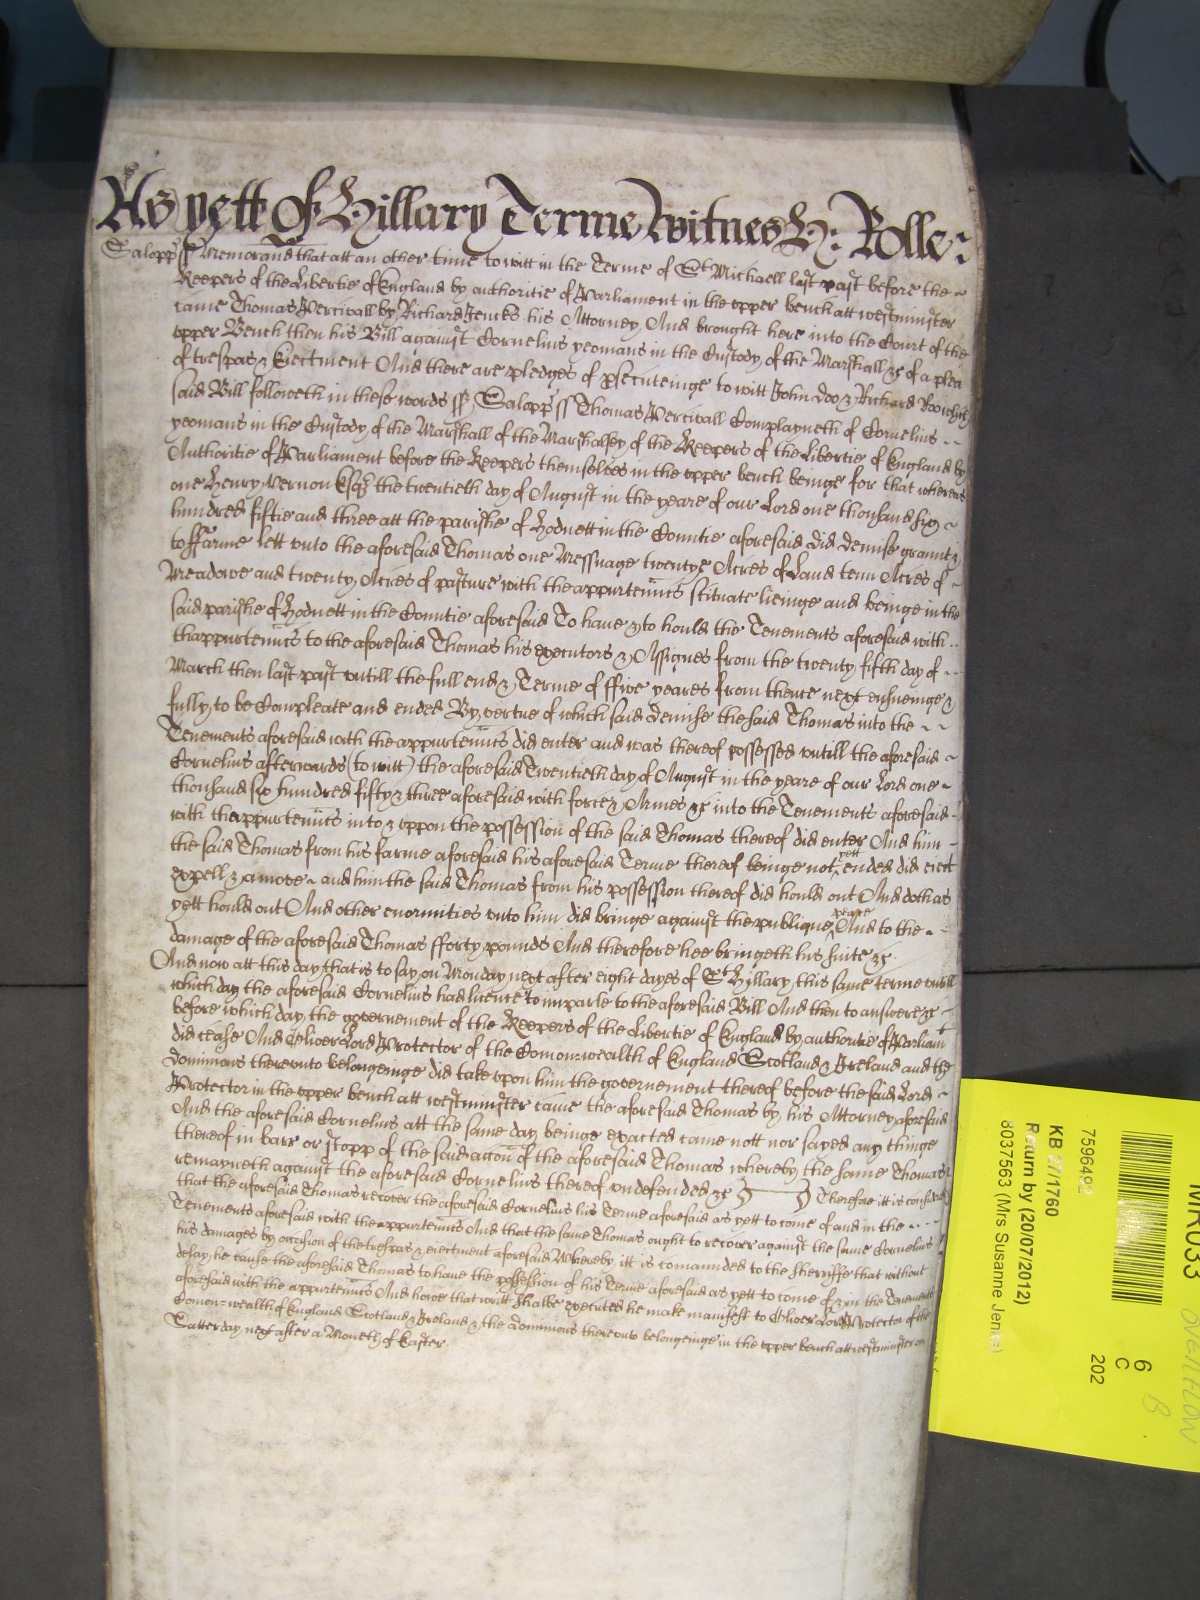 As yett Of Hillary Terme Witnes H: Rolle:
Salopp ss Memorand that att an other time to witt in the Terme of St Michaell last past before the
Keepers of the Libertie of England by authoritie of Parliament in the upper bench att westminster
came Thomas Percivall by Richard Jencks his Attorney And brought here into the Court of the
upper Bench then his Bill against Cornelius yeomans in the Custody of the Marshall &c of a plea
of trespas & Eiectment And there are pledges of psecuteinge to witt John Doo & Richard Roo which
said Bill followeth in these words ss Salopp ss Thomas Percivall Complayneth of Cornelius
yeomans in the Custody of the Marshall of the Marshalsey of the Keepers of the Libertie of England by
Authoritie of Parliament before the Keepers themselves in the upper bench beinge for that whereas
one Henry Vernon Esqr the twentieth day of August in the yeare of our Lord one thousand six
hundred fiftie and three att the parishe of Hodnett in the Countie aforesaid did demise graunt &
to ffarme lett unto the aforesaid Thomas one Messuage twentye Acres of Land tenn Acres of
Meadowe and twenty Acres of pasture with the appurtenncs scituate lieinge and beinge in the
said parishe of Hodnett in the Countie aforesaid To have & to hould the Tenements aforesaid with
thappurtenncs to the aforesaid Thomas his executors & Assignes from the twenty fifth day of
March then last past untill the full end & Terme of ffive yeares from thence next ensueinge &
fully to be Compleate and ended By vertue of which said demise the said Thomas into the
Tenements aforesaid with the appurtenncs did enter and was thereof possessed untill the aforesaid
Cornelius afterwards (to witt) the aforesaid Twentieth day of August in the yeare of our Lord one
thousand six hundred fifty & three aforesaid with force & Armes &c into the Tenements aforesaid
with thappurtenncs into & uppon the possession of the said Thomas thereof did enter And him
the said Thomas from his farme aforesaid his aforesaid Terme thereof beinge not yett ended did eiect
expell & amove and him the said Thomas from his possession thereof did hould out And doth as
yett hould out And other enormities unto him did bringe against the publique peace And to the
damage of the aforesaid Thomas fforty pounds And therefore hee bringeth his suite &c
And now att this day that is to say on Monday next after eight dayes of St Hillary this same terme untill
which day the aforesaid Cornelius had licence to imparle to the aforesaid Bill And then to answere &c
before which day the governement of the Keepers of the Libertie of England by authoritie of Parliamt
did cease And Oliver Lord Protector of the Comon=wealth of England Scotland & Ireland and the
dominions thereunto belongeinge did take upon him the governement thereof before the said Lord
Protector in the upper bench att westminster came the aforesaid Thomas by his Attorney aforesaid
And the aforesaid Cornelius att the same day beinge exacted came nott nor sayed any thinge
thereof in barr or stopp of the said accon of the aforesaid Thomas whereby the same Thomas
remayneth against the aforesaid Cornelius thereof undefended &c Therefore itt is considred
that the aforesaid Thomas recover the aforesaid Cornelius his Terme aforesaid as yett to come of and in the
Tenements aforesaid with the appurtenncs And that the same Thomas ought to recover against the same Cornelius
his damages by occasion of the trespas & eiectment aforesaid Whereby itt is comaunded to the Sherriffe that without
delay he cause the aforesaid Thomas to have the possession of his Terme aforesaid as yett to come of & in the Tenements
aforesaid with the appurtenncs And howe that writt shalbe executed he make manifest to Oliver Lord Protector of the
Comon=wealth of England Scotland & Ireland & the dominions thereunto belongeinge in the upper bench att westminster on
Satterday next after a Moneth of Easter
MR033
OVERFLOW
B
6
C
202
7596492
KB 27/1760
Return by (20/07/2012)
8037563 (Mrs Susanne Jen